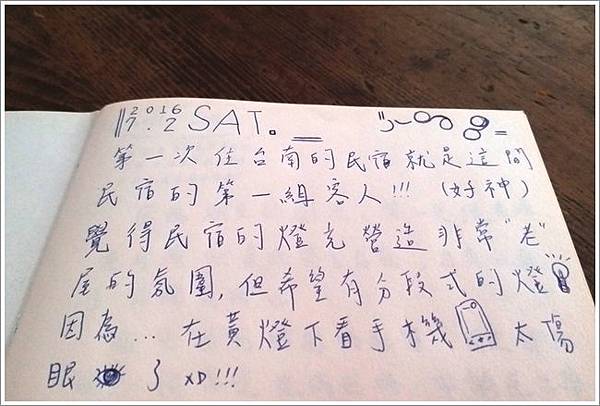 2016
7.2 SAT.
第一次住台南的民宿就是這間
民宿的第一組客人!!! (好神)
覺得民宿的燈光營造非常"老"
屋的氛圍,但希望有分段式的燈
因為...在黃燈下看手機 太傷
眼 了 XD!!!